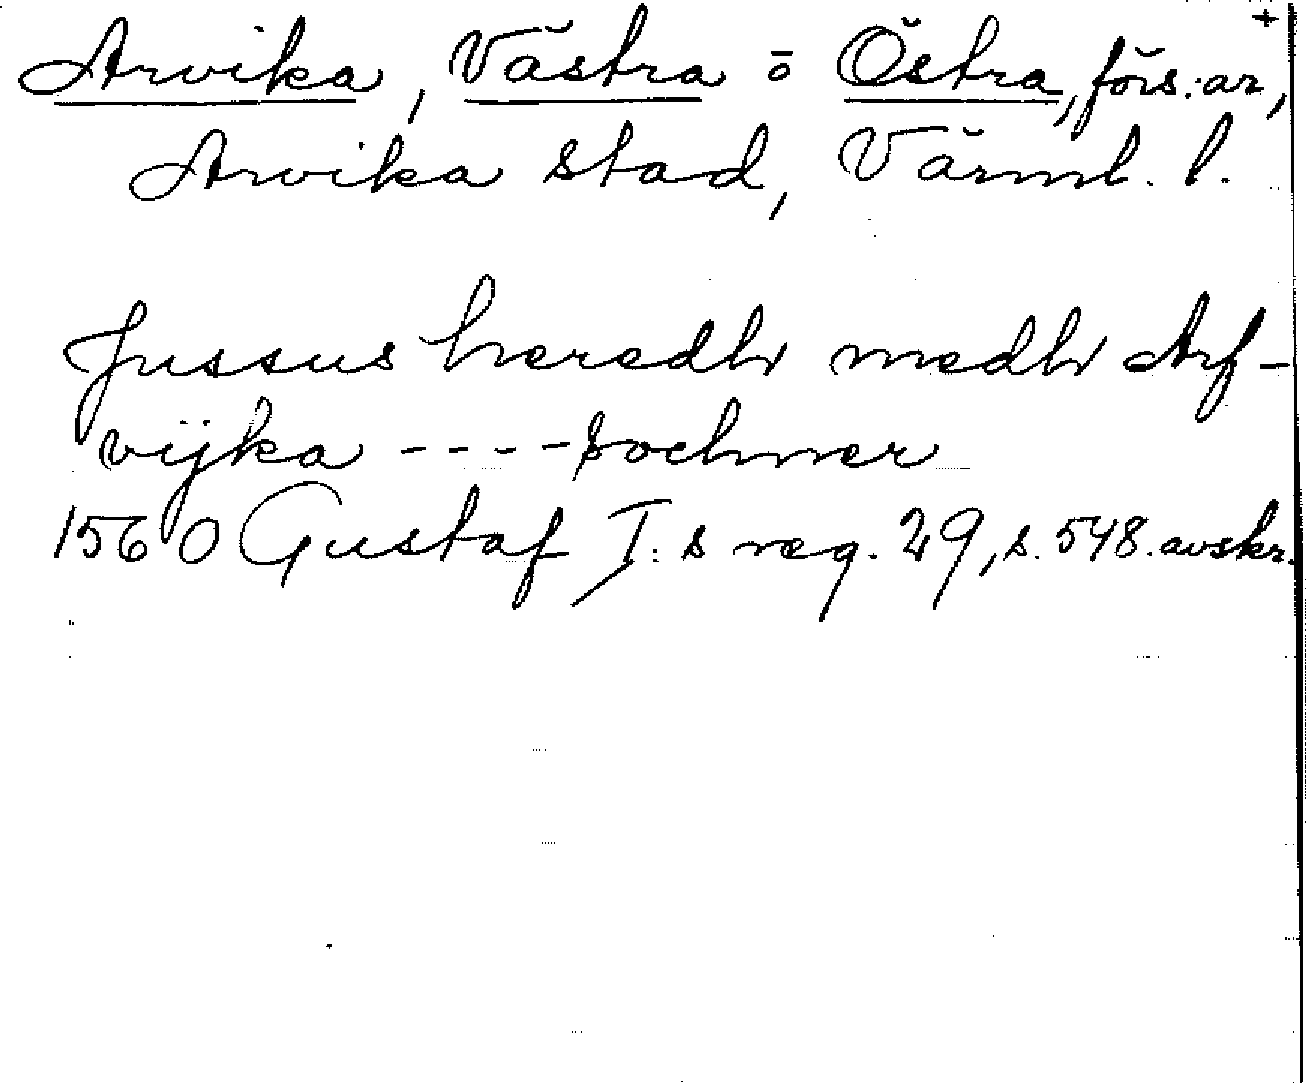 +
Arvika, Västra o Östra, förs:ar,
Arvika stad, Värml. l.
Jussus heredh medh Arf-
vijka ---- sochner
1560 Gustaf I:s reg. 29, s. 548. avskr.